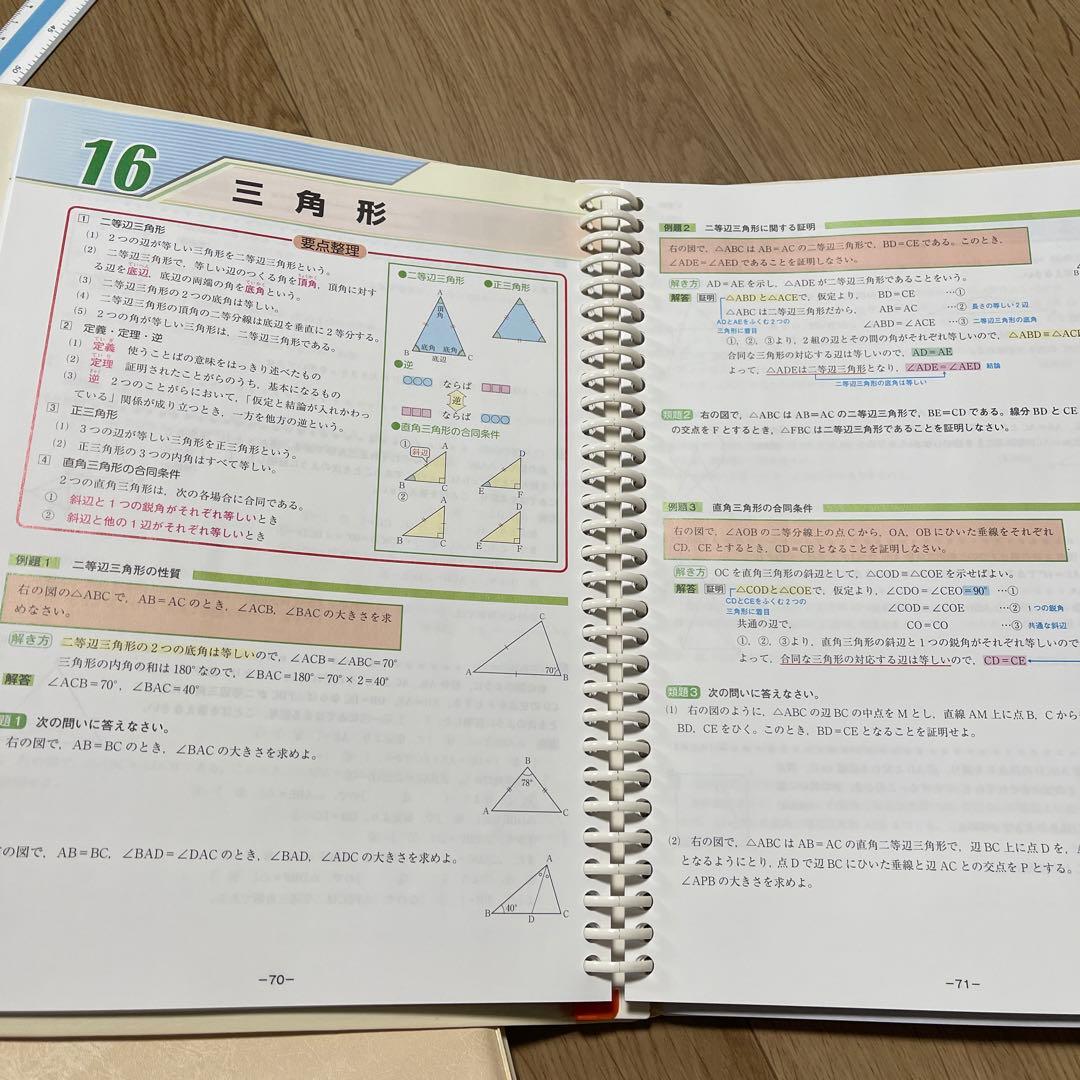 45
50
16
三角形
要点整理
1 二等辺三角形
(1) 2つの辺が等しい三角形を二等辺三角形という。
(2) 二等辺三角形で，等しい辺のつくる角を頂角，頂角に対す
る辺を底辺，底辺の両端の角を底角という。
(3) 二等辺三角形の2つの底角は等しい。
(4) 二等辺三角形の頂角の二等分線は底辺を垂直に2等分する。
(5) 2つの角が等しい三角形は，二等辺三角形である。
2 定義・定理・逆
(1) 定義 使うことばの意味をはっきり述べたもの
(2) 定理 証明されたことがらのうち，基本になるもの
(3) 逆 2つのことがらにおいて，「仮定と結論が入れかわっ
ている」関係が成り立つとき，一方を他方の逆という。
3 正三角形
(1) 3つの辺が等しい三角形を正三角形という。
(2) 正三角形の3つの内角はすべて等しい。
4 直角三角形の合同条件
2つの直角三角形は，次の各場合に合同である。
① 斜辺と1つの鋭角がそれぞれ等しいとき
② 斜辺と他の1辺がそれぞれ等しいとき
●二等辺三角形 ●正三角形
A
頂角
底角 底角
B C
底辺
●逆
○○○ ならば □□□
逆
□□□ ならば ○○○
●直角三角形の合同条件
① 斜辺 A D
B C E F
② A D
B C E F
例題1 二等辺三角形の性質
右の図の△ABCで，AB＝ACのとき，∠ACB，∠BACの大きさを求
めなさい。
解き方 二等辺三角形の2つの底角は等しいので，∠ACB＝∠ABC＝70°
三角形の内角の和は180°なので，∠BAC＝180°－70°×2＝40°
解答 ∠ACB＝70°，∠BAC＝40°
C
A 70° B
題1 次の問いに答えなさい。
右の図で，AB＝BCのとき，∠BACの大きさを求めよ。
B
78°
A C
の図で，AB＝BC，∠BAD＝∠DACのとき，∠BAD，∠ADCの大きさを求めよ。
A
B 40° D C
－70－
例題2 二等辺三角形に関する証明
右の図で，△ABCはAB＝ACの二等辺三角形で，BD＝CEである。このとき，
∠ADE＝∠AEDであることを証明しなさい。
解き方 AD＝AEを示し，△ADEが二等辺三角形であることをいう。
解答 証明 △ABDと△ACEで，仮定より， BD＝CE …①
△ABCは二等辺三角形だから， AB＝AC …② 長さの等しい2辺
ADとAEをふくむ2つの
三角形に着目
∠ABD＝∠ACE …③ 二等辺三角形の底角
①，②，③より，2組の辺とその間の角がそれぞれ等しいので，△ABD≡△ACE
合同な三角形の対応する辺は等しいので，AD＝AE
よって，△ADEは二等辺三角形となり，∠ADE＝∠AED 結論
二等辺三角形の底角は等しい
類題2 右の図で，△ABCはAB＝ACの二等辺三角形で，BE＝CDである。線分BDとCE
の交点をFとするとき，△FBCは二等辺三角形であることを証明しなさい。
例題3 直角三角形の合同条件
右の図で，∠AOBの二等分線上の点Cから，OA，OBにひいた垂線をそれぞれ
CD，CEとするとき，CD＝CEとなることを証明しなさい。
解き方 OCを直角三角形の斜辺として，△COD≡△COEを示せばよい。
解答 証明 △CODと△COEで，仮定より，∠CDO＝∠CEO＝90° …①
CDとCEをふくむ2つの
三角形に着目
∠COD＝∠COE …② 1つの鋭角
共通の辺で， CO＝CO …③ 共通な斜辺
①，②，③より，直角三角形の斜辺と1つの鋭角がそれぞれ等しいので
よって，合同な三角形の対応する辺は等しいので，CD＝CE
類題3 次の問いに答えなさい。
(1) 右の図のように，△ABCの辺BCの中点をMとし，直線AM上に点B，Cから
BD，CEをひく。このとき，BD＝CEとなることを証明せよ。
(2) 右の図で，△ABCはAB＝ACの直角二等辺三角形で，辺BC上に点Dを，
となるようにとり，点Dで辺BCにひいた垂線と辺ACとの交点をPとする。
∠APBの大きさを求めよ。
－71－